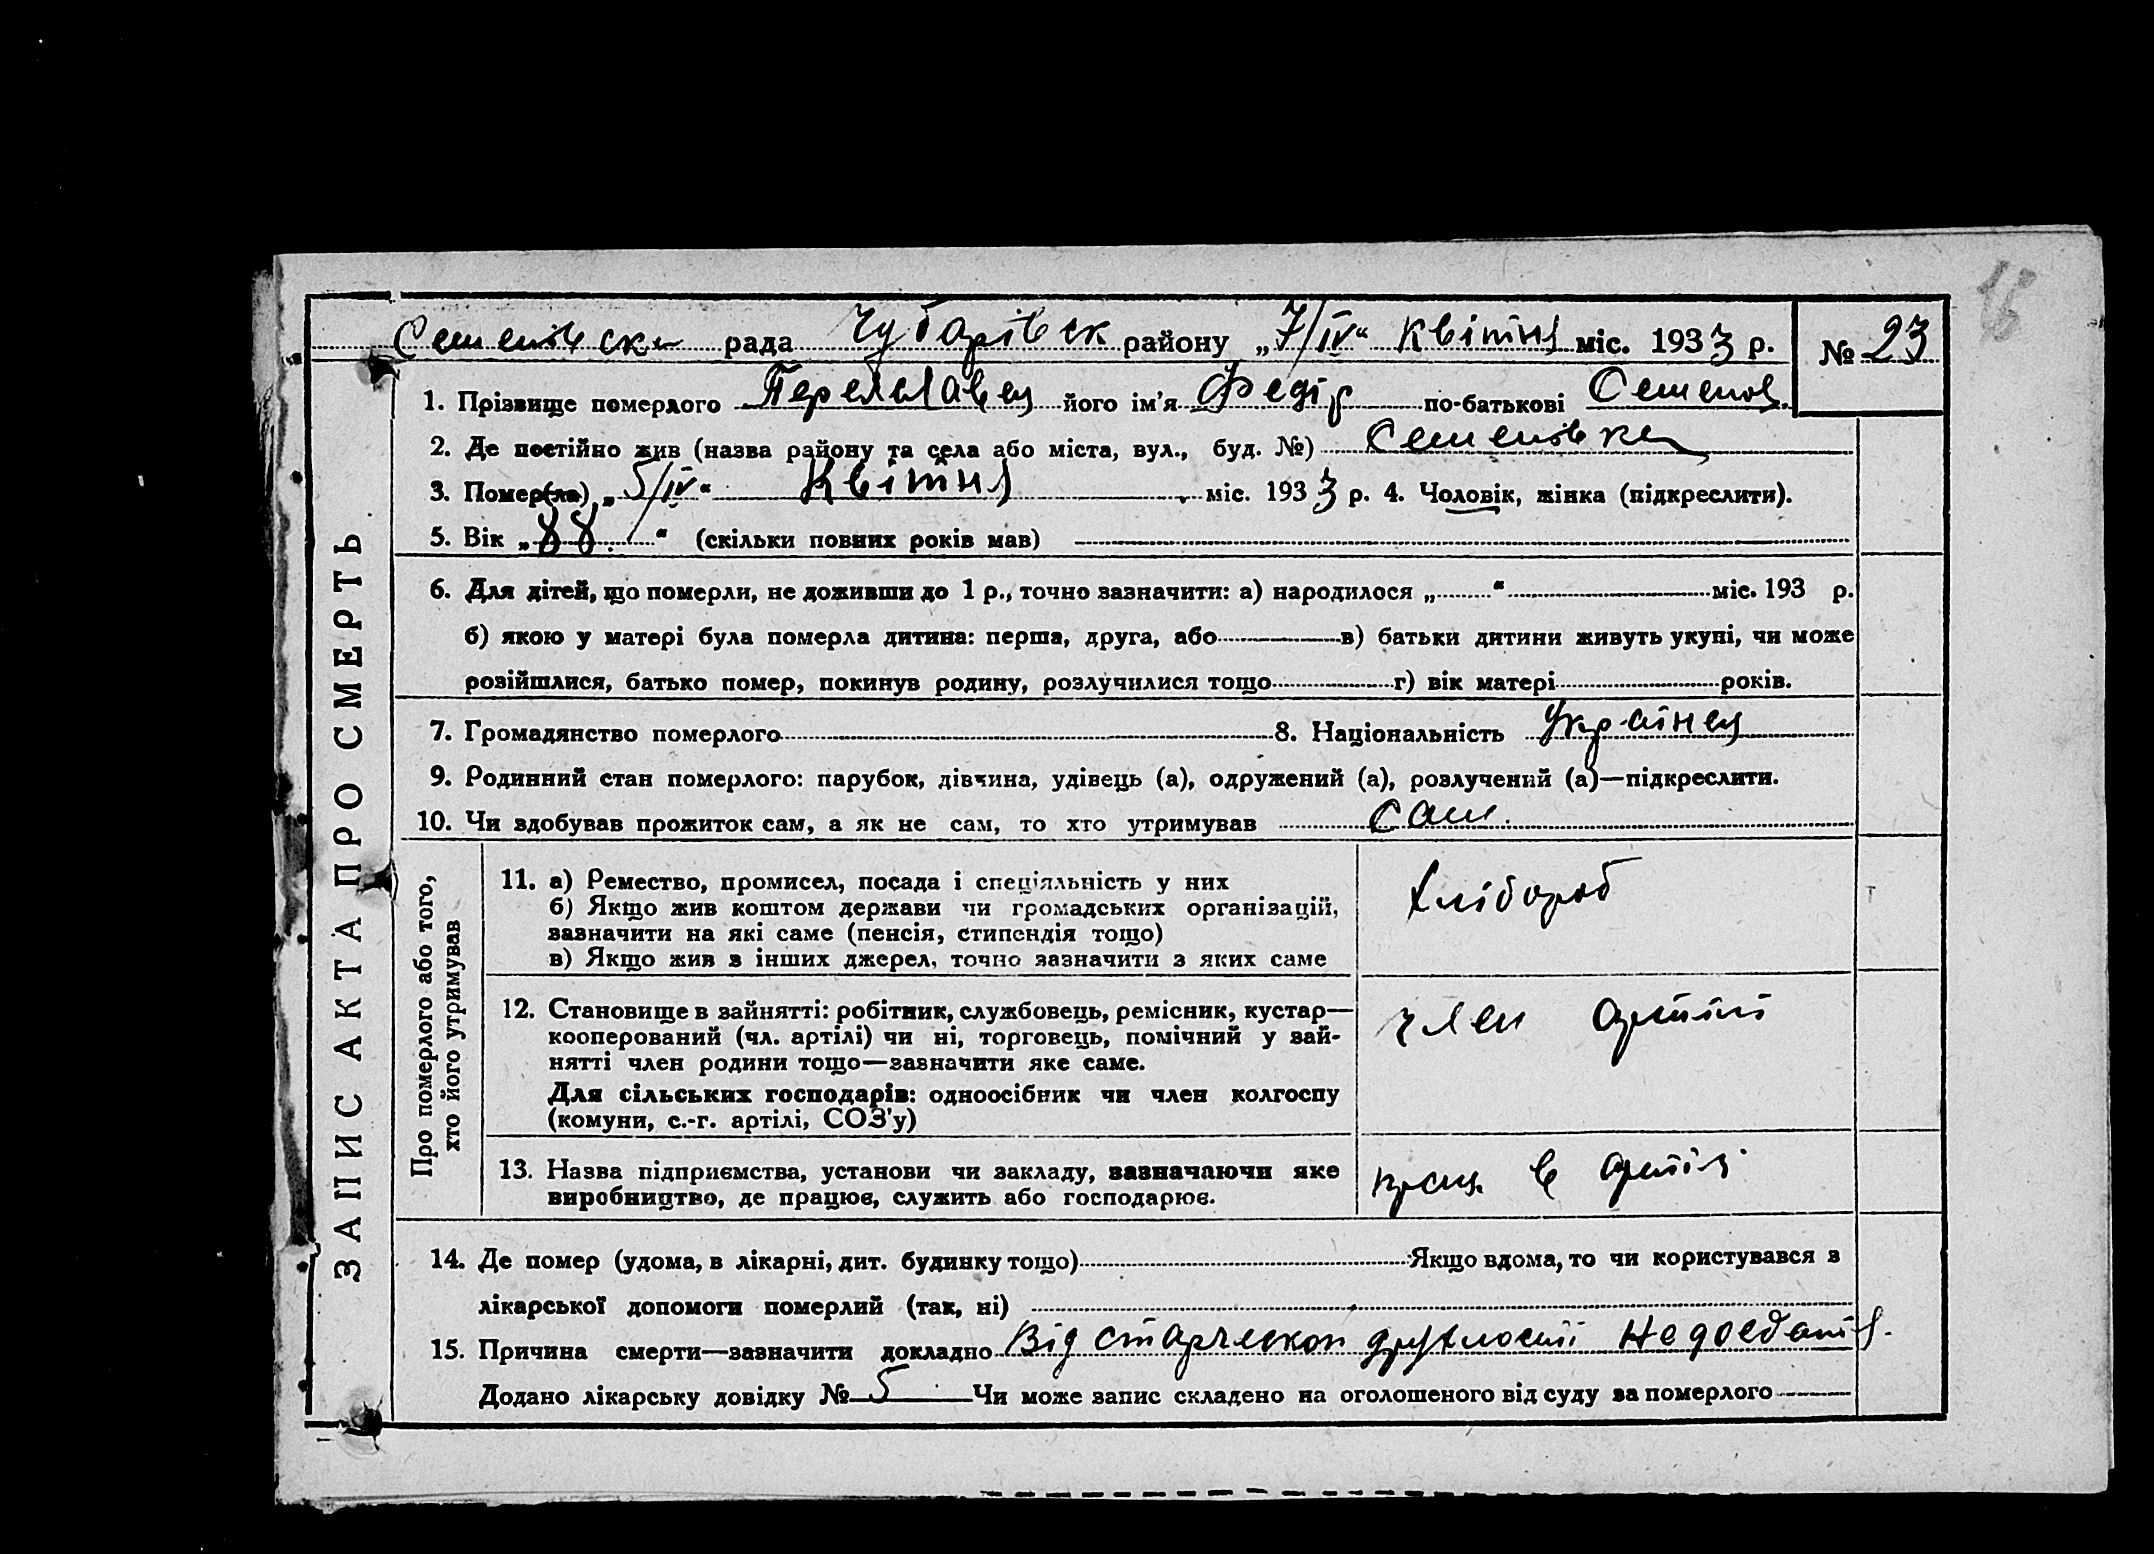 16
Семенівска рада Чубарівск району „7/IV“ Квітня міс. 1933 р. № 23
1. Прізвище померлого Переяславец його ім'я Федір по-батькові Семенов.
2. Де постійно жив (назва району та села або міста, вул., буд. №) Семенівка
3. Помер(ла) „5/IV“ Квітня міс. 1933 р. 4. Чоловік, жінка (підкреслити).
5. Вік „88“ (скільки повних років мав)
6. Для дітей, що померли, не доживши до 1 р., точно зазначити: а) народилося „ “ міс. 193 р.
б) якою у матері була померла дитина: перша, друга, або в) батьки дитини живуть укупі, чи може
розійшлися, батько помер, покинув родину, розлучилися тощо г) вік матері років.
7. Громадянство померлого 8. Національність Украінец
9. Родинний стан померлого: парубок, дівчина, удівець (а), одружений (а), розлучений (а)—підкреслити.
10. Чи здобував прожиток сам, а як не сам, то хто утримував сам.
ЗАПИС АКТА ПРО СМЕРТЬ
Про померлого або того,
хто його утримував
11. а) Ремество, промисел, посада і спеціяльність у них
б) Якщо жив коштом держави чи громадських організацій,
зазначити на які саме (пенсія, стипендія тощо)
в) Якщо жив з інших джерел, точно зазначити з яких саме
хлібороб
12. Становище в зайнятті: робітник, службовець, ремісник, кустар—
кооперований (чл. артілі) чи ні, торговець, помічний у зай-
нятті член родини тощо—зазначити яке саме.
Для сільських господарів: одноосібник чи член колгоспу
(комуни, с.-г. артілі, СОЗ'у)
член артілі
13. Назва підприємства, установи чи закладу, зазначаючи яке
виробництво, де працює, служить або господарює.
прац. в артілі
14. Де помер (удома, в лікарні, дит. будинку тощо) Якщо вдома, то чи користувався з
лікарської допомоги померлий (так, ні)
15. Причина смерти—зазначити докладно Від старческой дряхлости Недоеданія.
Додано лікарську довідку № 5 Чи може запис складено на оголошеного від суду за померлого